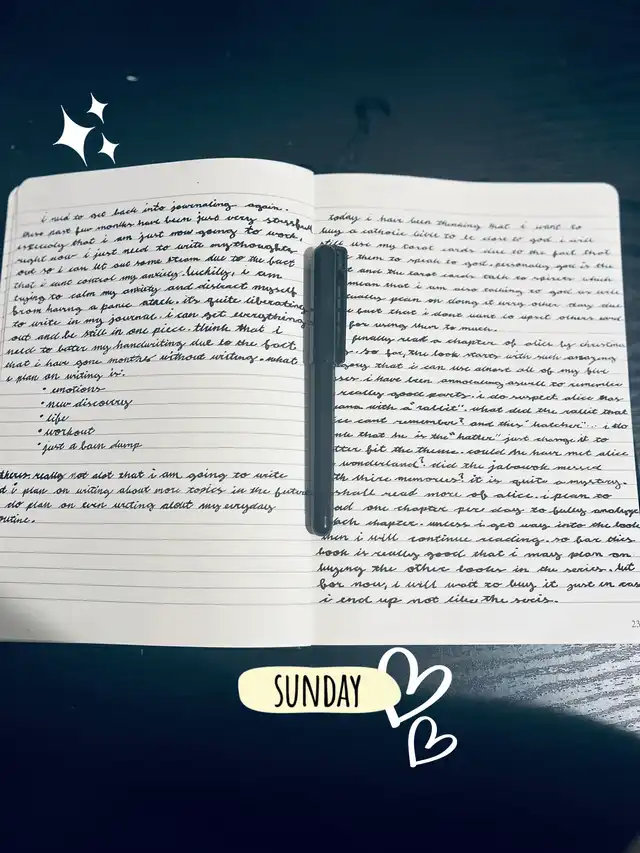 i need to get back into journaling again.
these past few months have been just very stressful
especially that i am just now going to work,
right now i just need to write my thoughts
out so i can let out some steam due to the fact
that i cant control my anxiety. luckily, i am
trying to calm my anxiety and distract myself
from having a panic attack. its quite liberating
to write in my journal. i can get everything
out and be still in one piece. think that i
need to better my handwriting due to the fact
that i have gone months without writing. what
i plan on writing is:
• emotions
• new discovery
• life
• workout
• just a brain dump
theres really not alot that i am going to write
i plan on writing about more topics in the future
do plan on even writing about my everyday
routine.
today i have been thinking that i want to
buy a catholic bible to be close to god. i will
still use my tarot cards due to the fact that
them to speak to god. personally god is the
and the tarot cards talk to spirits which
mean that i am also talking to god as well
plan on doing it every other day due
fact that i dont want to upset others and
for using them to much.
finally read a chapter of alice by christina
so far, the book starts with such amazing
that i can use almost all of my five
i have been annotating aswell to remember
really good parts. i do suspect alice has
with a "rabbit". what did the rabbit that
cant remember? and this "hatcher"... i do
that he is the "hatter" just change it to
fit the theme. could he have met alice
wonderland? did the jabowok messed
memories? it is quite a mystery.
shall read more of alice. i plan to
one chapter per day to fully analyze
each chapter. unless i get way into the book
then i will continue reading. so far this
book is really good that i may plan on
buying the other books in the series. but
for now, i will wait to buy it just in case
i end up not like the
23
SUNDAY